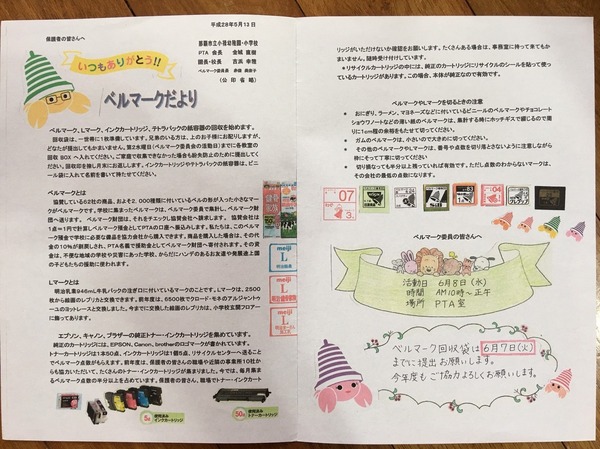 平成28年5月13日
保護者の皆さんへ
那覇市立小禄幼稚園・小学校
PTA 会長 金城 直樹
園長・校長 吉浜 幸雅
ベルマーク委員長
(公印省略)
いつもありがとう!!
ベルマークだより
ベルマーク、Lマーク、インクカートリッジ、テトラパックの紙容器の回収を始めます。
回収袋は、一世帯に1枚準備しています。兄弟のいる方は、上のお子様にお配りしますが、
どなたが提出してもかまいません。第2水曜日(ベルマーク委員会の活動日)までに各教室の
回収BOXへ入れてください。ご家庭で収集できなかった場合も紛失防止のために提出してく
ださい。回収印を捺しお返しします。インクカートリッジやテトラパックの紙容器は、ビニ
ール袋に入れて名前を書いて持たせてください。
ベルマークとは
協賛している62社の商品、およそ2,000種類に付いているベルの形が入った小さなマー
クがベルマークです。学校に集まったベルマークは、ベルマーク委員で集計し、ベルマーク財
団へ送ります。ベルマーク財団は、それをチェックし協賛会社へ請求します。協賛会社は
1点=1円で計算しベルマーク預金としてPTAの口座へ振込みします。私たちは、このベルマ
ーク預金で学校に必要な備品を協力会社から購入できます。商品を購入した場合は、その代
金の10%が割戻しされ、PTA名義で援助金としてベルマーク財団へ寄付されます。その資
金は、不便な地域の学校や災害にあった学校、からだにハンデのあるお友達や発展途上国
の子どもたちの援助に使われます。
Lマークとは
明治乳業946mL牛乳パックの注ぎ口に付いているマークのことです。Lマークは、2500
枚から絵画のレプリカと交換できます。前年度は、6500枚でクロード・モネのアルジャントゥ
ーユのヨットレースと交換しました。今まで交換した絵画のレプリカは、小学校玄関フロア
ーに飾ってあります。
エプソン、キャノン、ブラザーの純正トナー・インクカートリッジを集めています。
純正のカートリッジには、EPSON、Canon、brotherのロゴマークが書かれています。
トナーカートリッジは1本50点、インクカートリッジは1個5点、リサイクルセンターへ送ること
でベルマーク点数がもらえます。前年度は、保護者の皆さんの職場や近隣の事業所10社か
らも協力いただいて、たくさんのトナー・インクカートリッジが集まりました。今では、毎月集ま
るベルマーク点数の半分以上を占めています。保護者の皆さん、職場でトナー・インクカート
meiji
L
meiji
L
meiji
L
5点
使用済み
インクカートリッジ
50点
使用済み
トナーカートリッジ
リッジがいただけないか確認をお願いします。たくさんある場合は、事務室に持って来てもか
まいません。随時受け付けしています。
*リサイクルカートリッジの中には、純正のカートリッジにリサイクルのシールを貼って使っ
ているカートリッジがあります。この場合、本体が純正なので有効です。
ベルマークやLマークを切るときの注意
● おにぎり、ラーメン、マヨネーズなどに付いているビニールのベルマークやチョコレート
ショウワノートなどの薄い紙のベルマークは、集計する時にホッチキスで綴じるので周
りに1cm程の余裕をもたせて切ってください。
● ガムのベルマークは、小さいので大きめに切ってください。
● その他のベルマークやLマークは、番号や点数を切り落とさないように注意しながら
枠にそって丁寧に切ってください
● 切り損なっても半分以上残っていれば有効です。ただし点数のわからないマークは、
その会社の最低の点数になります。
07
3
ベルマーク委員の皆さんへ
活動日 6月8日(水)
時間 AM10時~正午
場所 PTA室
ベルマーク回収袋は6月7日(火)
までに提出お願いします。
今年度もご協力よろしくお願いします。